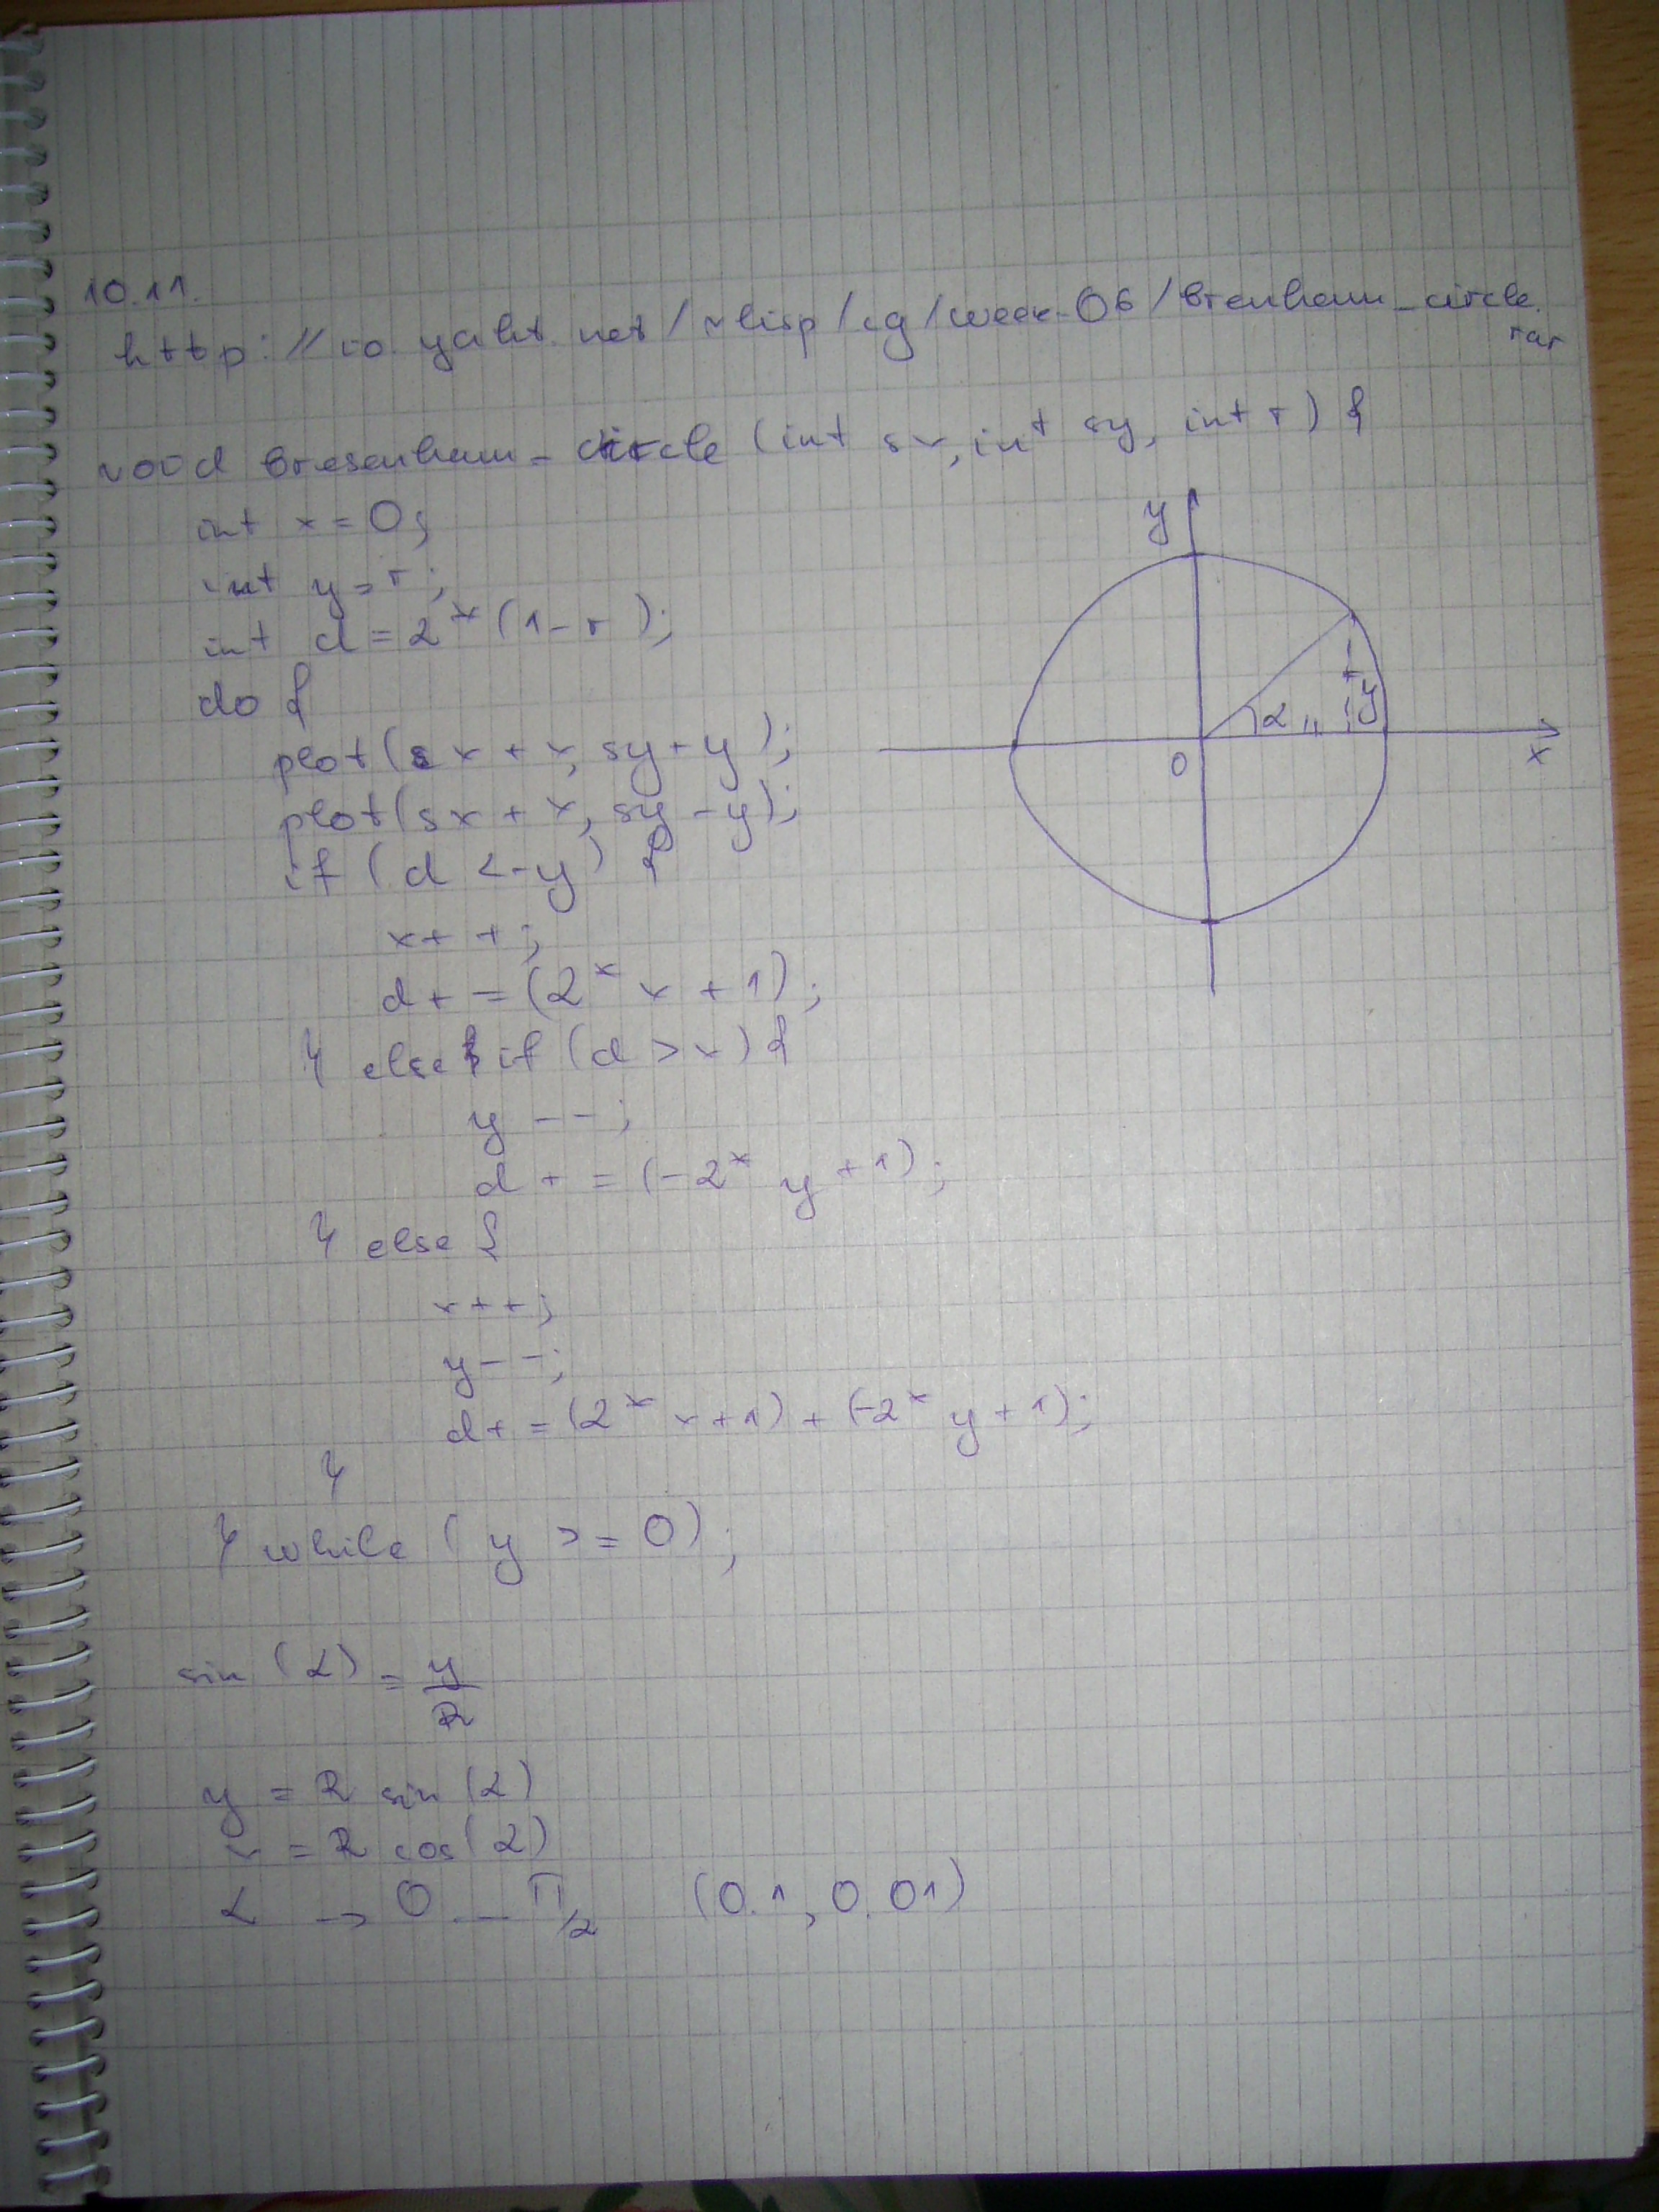 10.11.
http://io.yaht.net/~lisp/cg/week-06/Brenham_circle.
rar
void Bresenham_circle (int sx, int sy, int r) {
int x = 0;
int y = r;
int d = 2*(1-r);
do {
plot(sx + x, sy + y);
plot(sx + x, sy - y);
if (d < -y) {
x++;
d += (2*x + 1);
} else if (d > x) {
y--;
d += (-2*y + 1);
} else {
x++;
y--;
d += (2*x+1) + (-2*y + 1);
}
} while (y >= 0);
y
α
y
0
x
sin(α) = y/R
y = R sin(α)
x = R cos(α)
α → 0 ... π/2 (0.1, 0.01)